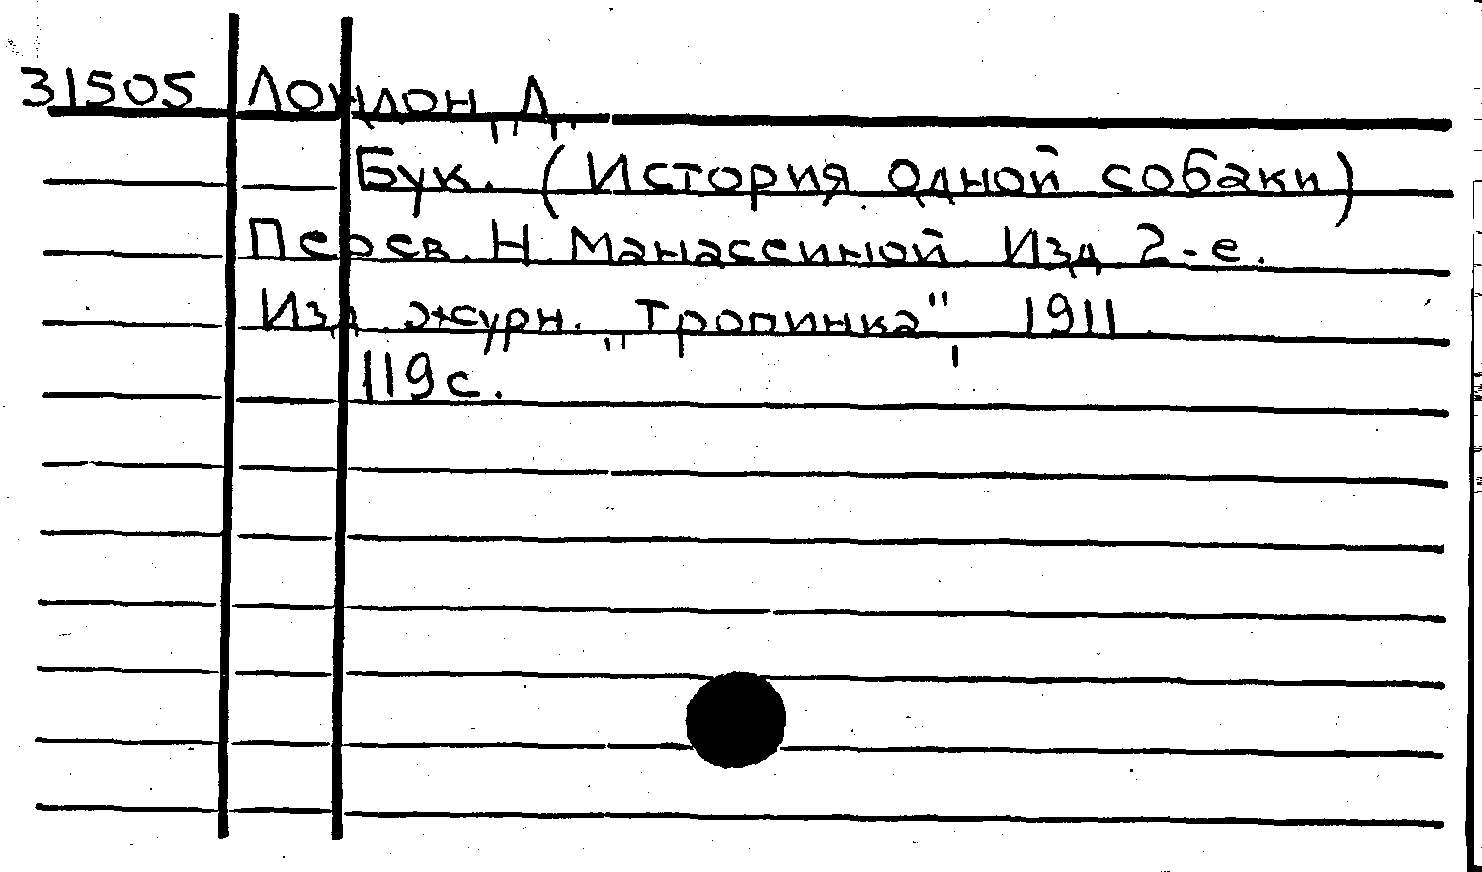 31505 Лондон, Д.
Бук. (История одной собаки)
Перев. Н. Манасеиной. Изд. 2-е.
Изд. журн. „Тропинка", 1911.
119 с.